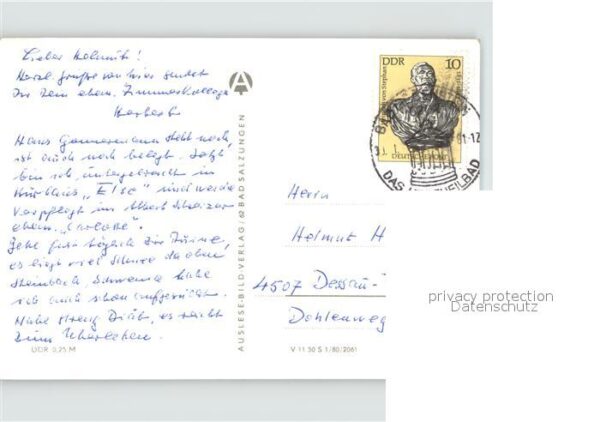 Lieber Helmut!
Herzl. Grüße von hier sendet
Dir Dein ehem. Zimmerkollege
Herbert
Haus Gonnermann steht noch,
ist auch noch belegt. Jetzt
bin ich untergebracht im
Kurhaus "Else" und werde
verpflegt im Albert Schweizer
ehem. "Carlotte".
Gehe fast täglich zur Ruine,
es liegt viel Schnee da oben
Steinbach, Schweina habe
ich auch schon aufgesucht.
Habe streng Diät, es reicht
zum Überleben.
DDR 0,25 M
AUSLESE-BILD-VERLAG / 62 BAD SALZUNGEN
V 11 50 S 1/80/2061
DDR 10
von Stephan
DEUTSCHE POST
Herrn
Helmut H
4507 Dessau-
Dohlenweg
privacy protection
Datenschutz